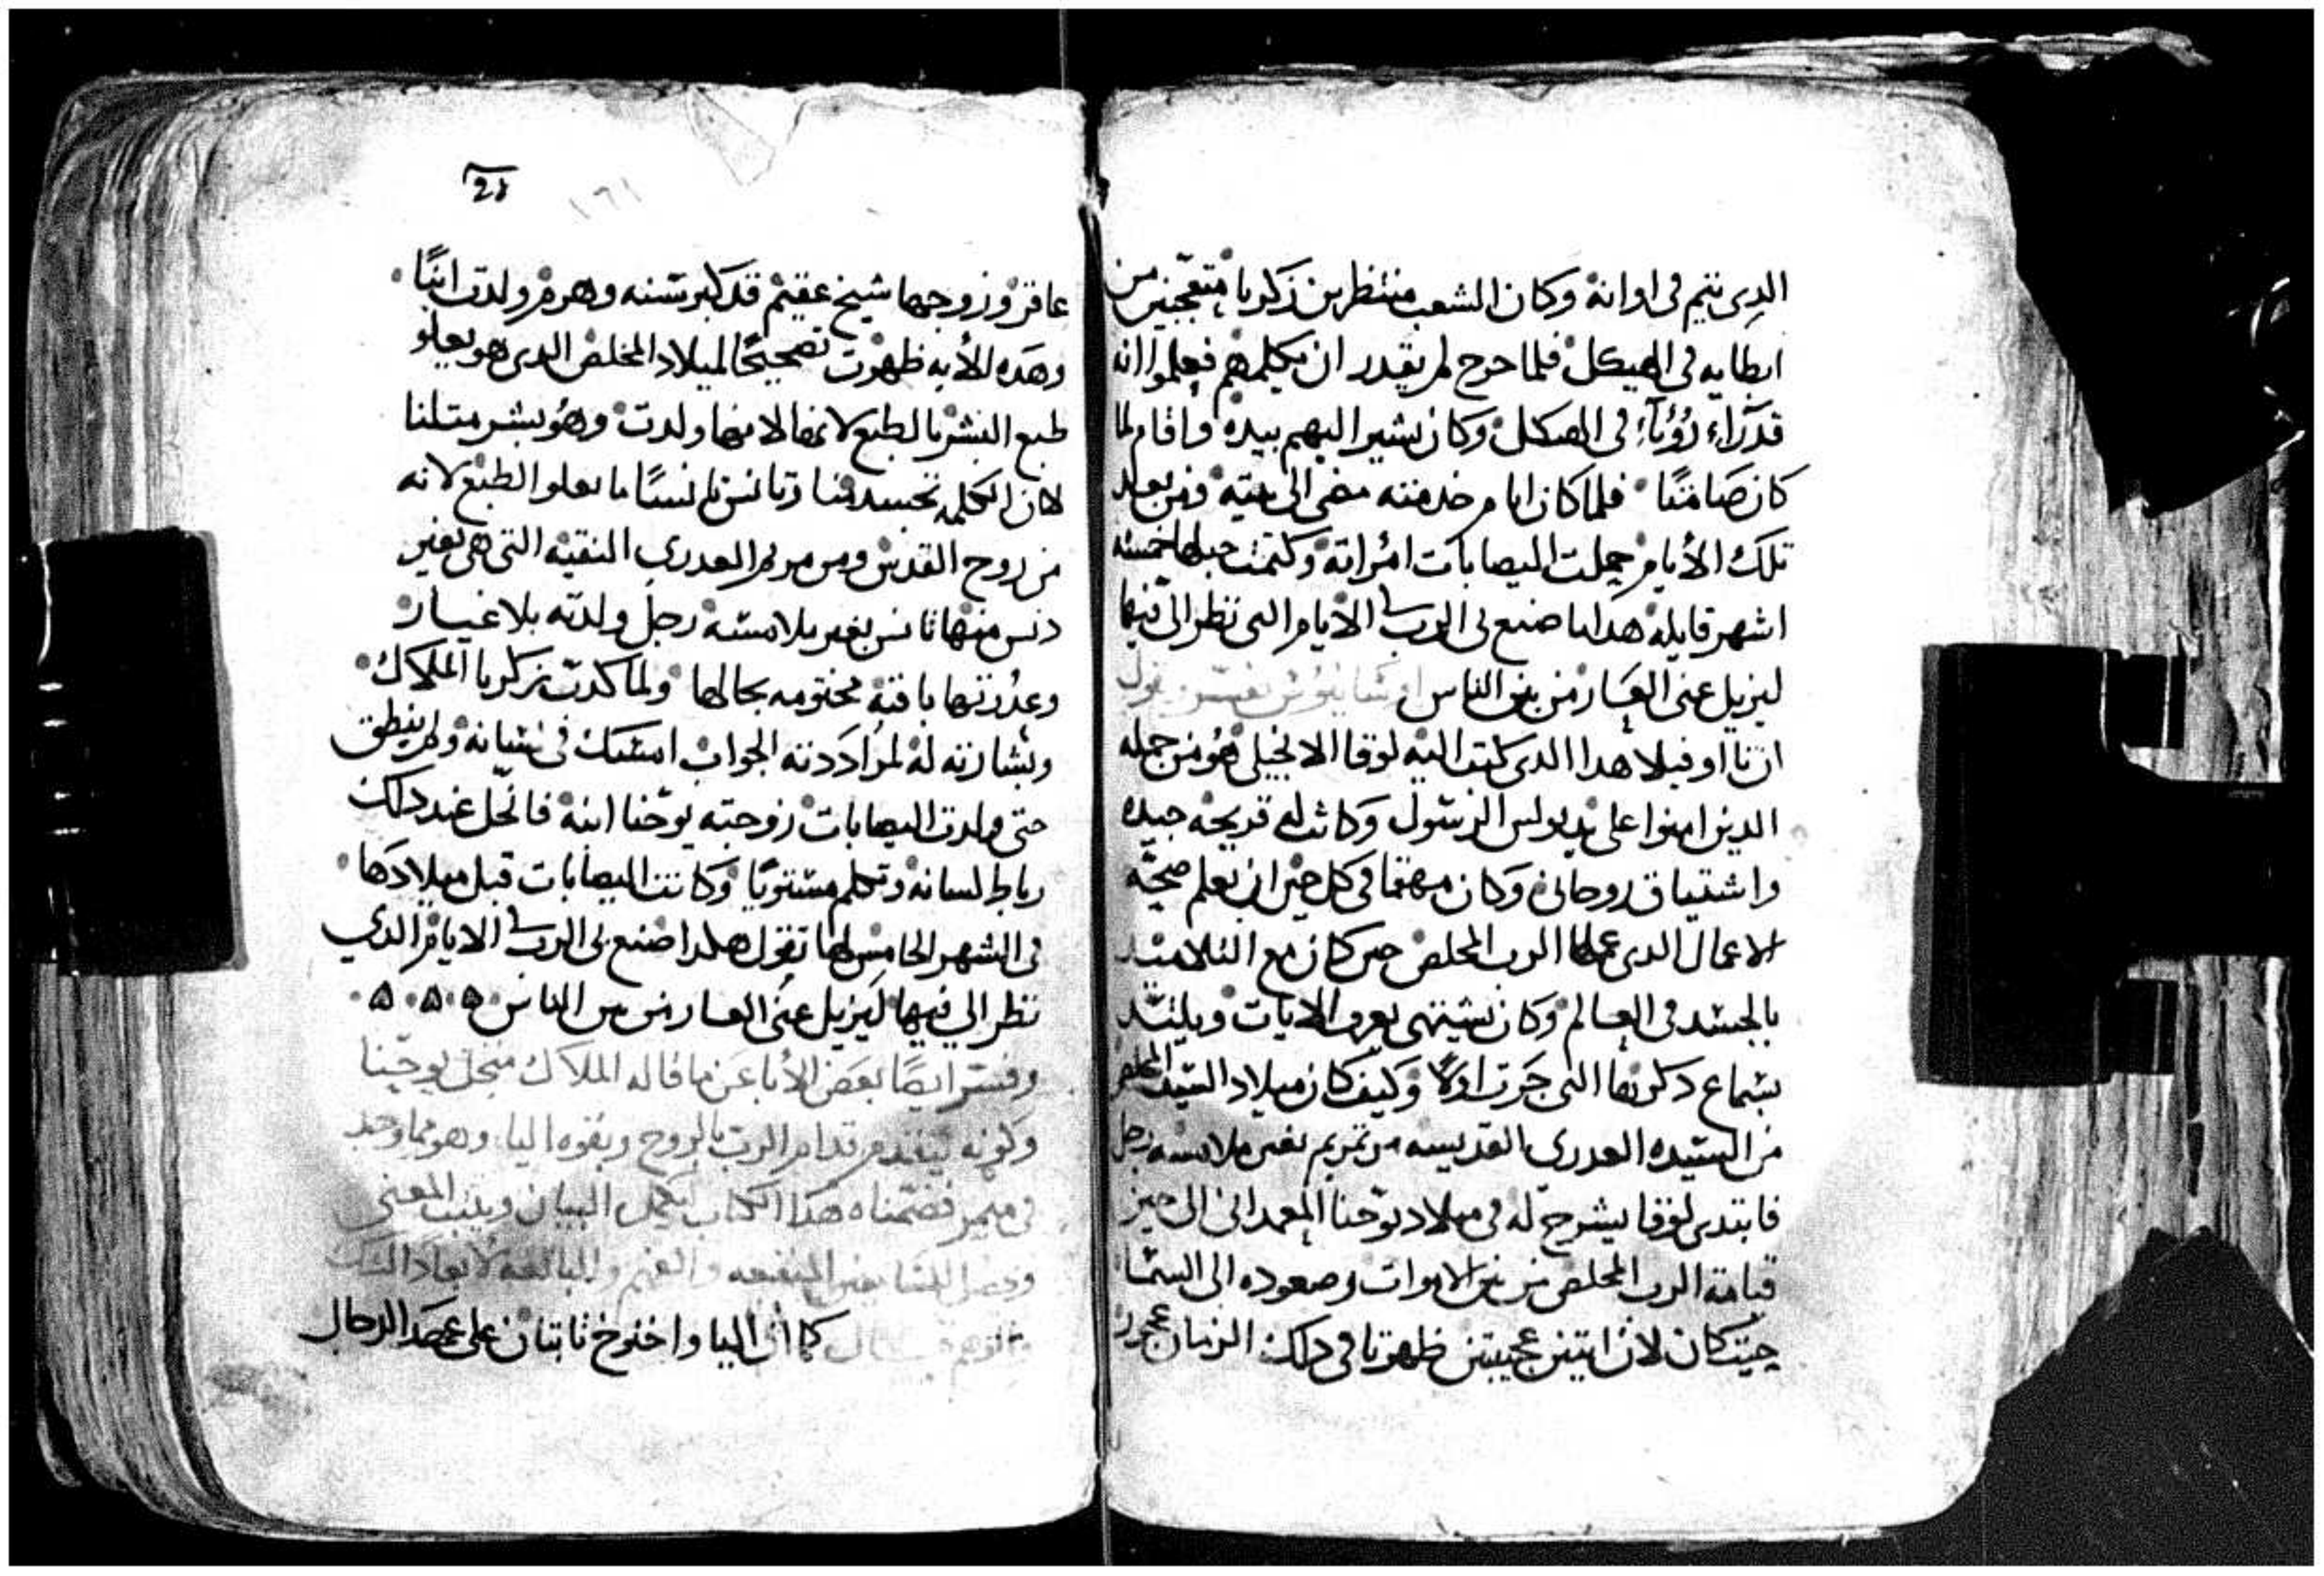 الدى يتم فى اوانه وكان الشعب منتظرين زكريا متعجبين من
ابطايه فى الهيكل فلما خرج لم يقدر ان يكلمهم فعلموا انه
قد رآء رؤيآء فى الهيكل وكان يشير اليهم بيده واقام لها
كان صامتًا فلما كان ايام خدمته مضى الى بيته ومن بعد
تلك الأيام حبلت اليصابات امراته وكتمت حبلها خمسه
اشهر قايله هدا ما صنع لى الرب فى الايام التى نظر الىّ فيها
ليزيل عنى العار من بين الناس يفسر ويقول
ان تااوفيلا هدا الدى كتب اليه لوقا الانجيلى هو من جمله
الدين امنوا على يد بولس الرسول وكانت له قريحه جيده
واشتياق روحانى وكان مهتما فى كل حين ان يعلم صحّة
الاعمال الدى عملها الرب المخلص حين كان مع التلاميد
بالجسد فى العالم وكان يشتهى يعرف الايات ويلتد
بسماع دكرها التى جرت اولًا وكيف كان ميلاد السيد المخلص
من السيده العدرى القديسه مرتمريم بغير ملامسه رجل
فابتدى لوقا يشرح له فى ميلاد يوحنا المعمدانى الى حين
قيامة الرب المخلص من بين الاموات وصعوده الى السما
حيت كان لان ايتين عجيبتين ظهرتا فى دلك الزمان عجوز
21
١٦١
عاقر وزوجها شيخ عقيم قد كبر سنه وهرم ولدت ابنًا
وهده الأيه ظهرت تصحيحًا لميلاد المخلص الدى هو يعلو
طبع البشر بالطبع لانها لابنها ولدت وهو بشر متلنا
لان الكلمه تجسد منا وتانس تانسًا ما يعلو الطبع لانه
من روح القدس ومن مريم العدرى النقيه التى هى بغير
دنس منها تانس بغير ملامسة رجل ولدته بلا غيار
وعدرتها باقية مختومه بحالها ولما كدب زكريا الملاك
وبشارته له لمرادته الجواب امسك فى لسانه ولم ينطق
حتى ولدت اليصابات زوجته يوحنا ابنه فانحل عند دلك
رباط لسانه وتكلم مستويًا وكانت اليصابات قبل ميلادها
فى الشهر الخامس لها تقول هكدا صنع لى الرب فى الايام الدي
نظر الي فيها ليزيل عنى العار من بين الناس
وفسر ايضًا بعض الأبا عن ما قاله الملاك منجل يوحنا
وكونه يتقدم قدام الرب بالروح وبقوه اليا وهو مما وجد
فى ميمر فضمّناه هدا الكتاب ليكمل البيان ويتبت المعنى
المنفعه والفهم
كما ان اليا واخنوخ ثابتان على عهد الدحال